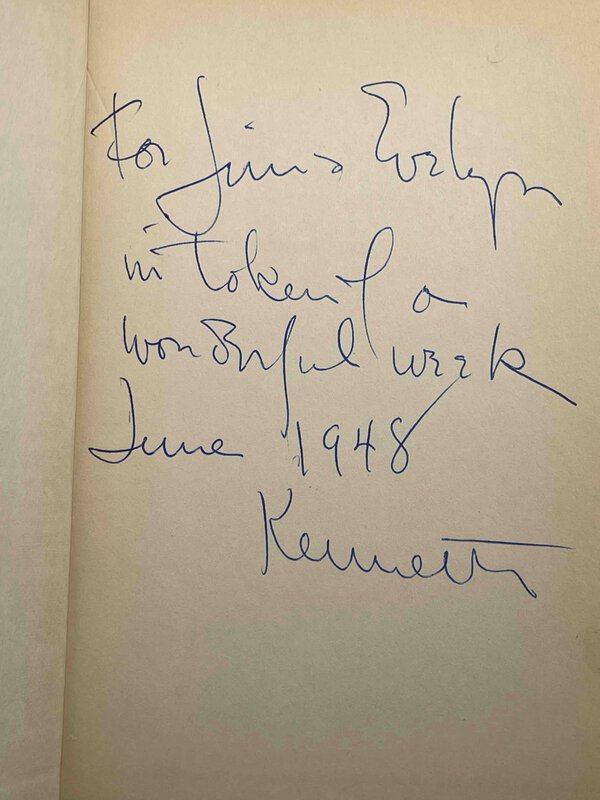 For Jim & Evelyn
in token of a
wonderful week
June 1948
Kenneth